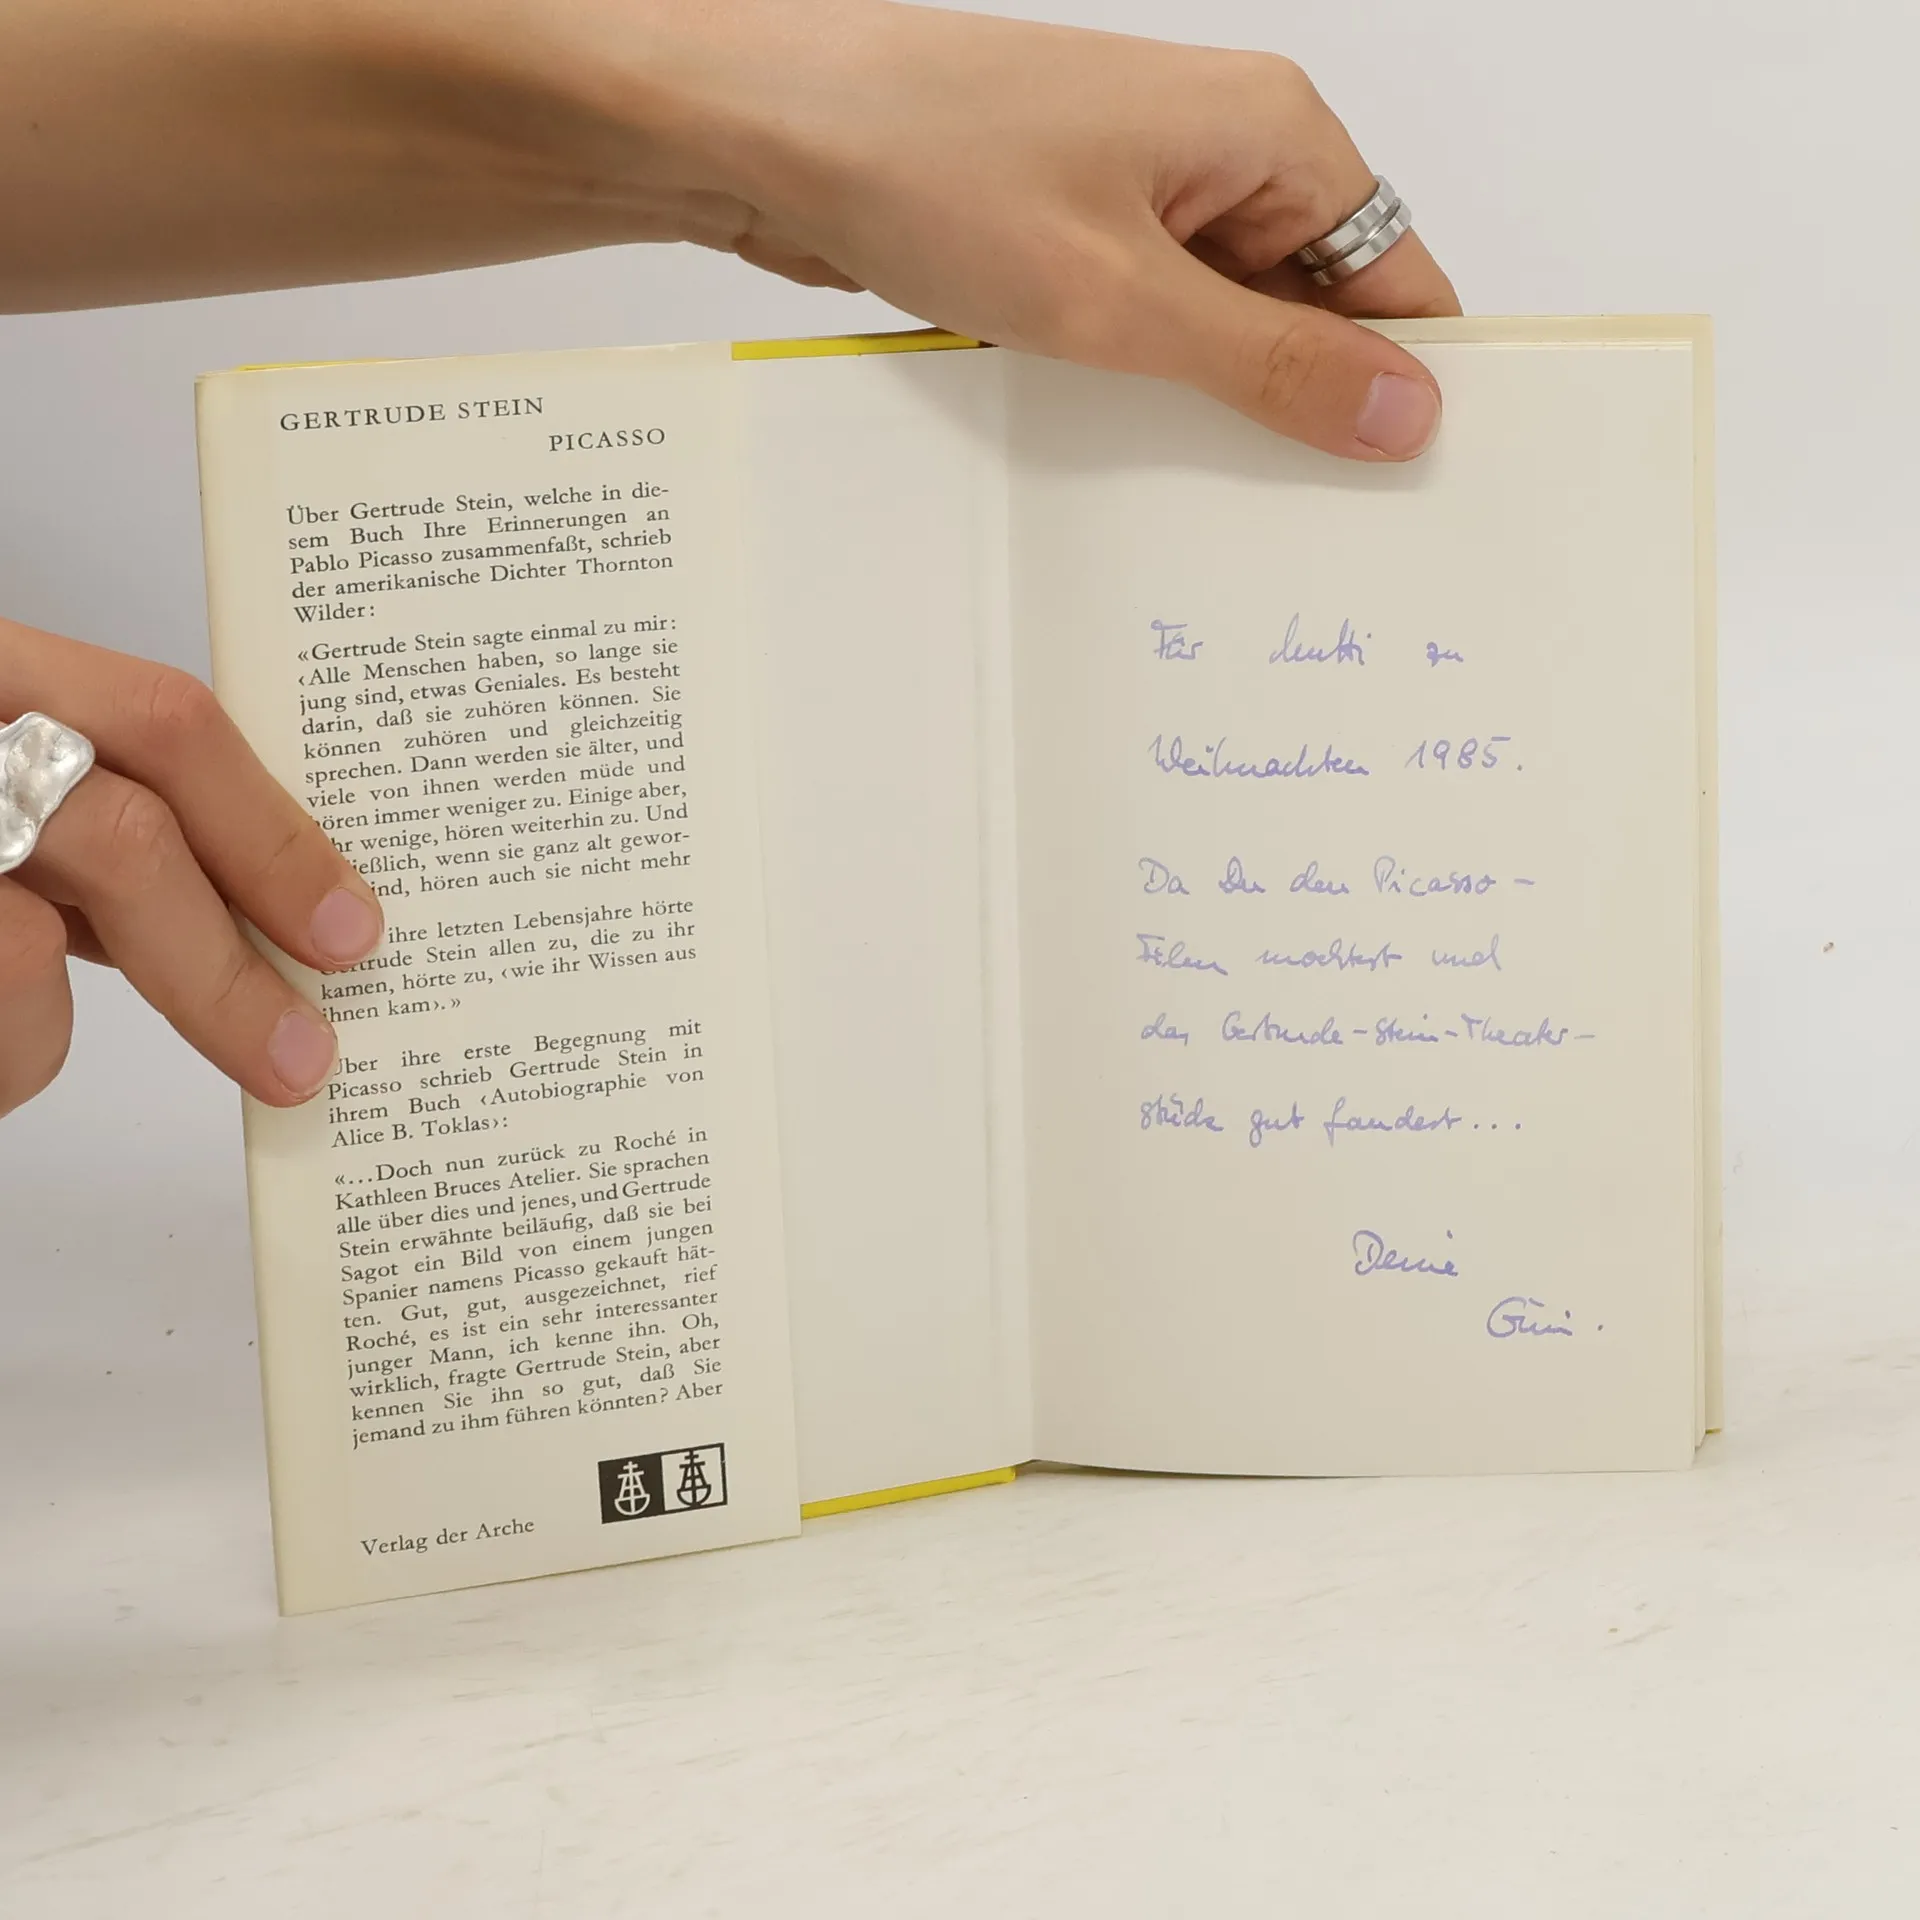 GERTRUDE STEIN
PICASSO
Über Gertrude Stein, welche in die-
sem Buch Ihre Erinnerungen an
Pablo Picasso zusammenfaßt, schrieb
der amerikanische Dichter Thornton
Wilder:
«Gertrude Stein sagte einmal zu mir:
‹Alle Menschen haben, so lange sie
jung sind, etwas Geniales. Es besteht
darin, daß sie zuhören können. Sie
können zuhören und gleichzeitig
sprechen. Dann werden sie älter, und
viele von ihnen werden müde und
hören immer weniger zu. Einige aber,
wenige, hören weiterhin zu. Und
wenn sie ganz alt gewor-
hören auch sie nicht mehr
ihre letzten Lebensjahre hörte
Gertrude Stein allen zu, die zu ihr
kamen, hörte zu, ‹wie ihr Wissen aus
ihnen kam›.»
Über ihre erste Begegnung mit
Picasso schrieb Gertrude Stein in
ihrem Buch ‹Autobiographie von
Alice B. Toklas›:
«...Doch nun zurück zu Roché in
Kathleen Bruces Atelier. Sie sprachen
alle über dies und jenes, und Gertrude
Stein erwähnte beiläufig, daß sie bei
Sagot ein Bild von einem jungen
Spanier namens Picasso gekauft hät-
ten. Gut, gut, ausgezeichnet, rief
Roché, es ist ein sehr interessanter
junger Mann, ich kenne ihn. Oh,
wirklich, fragte Gertrude Stein, aber
kennen Sie ihn so gut, daß Sie
jemand zu ihm führen könnten? Aber
Verlag der Arche
Für Mutti zu
Weihnachten 1985.
Da Du den Picasso-
Film mochtest und
das Gertrude-Stein-Theater-
stück gut fandest...
Deine